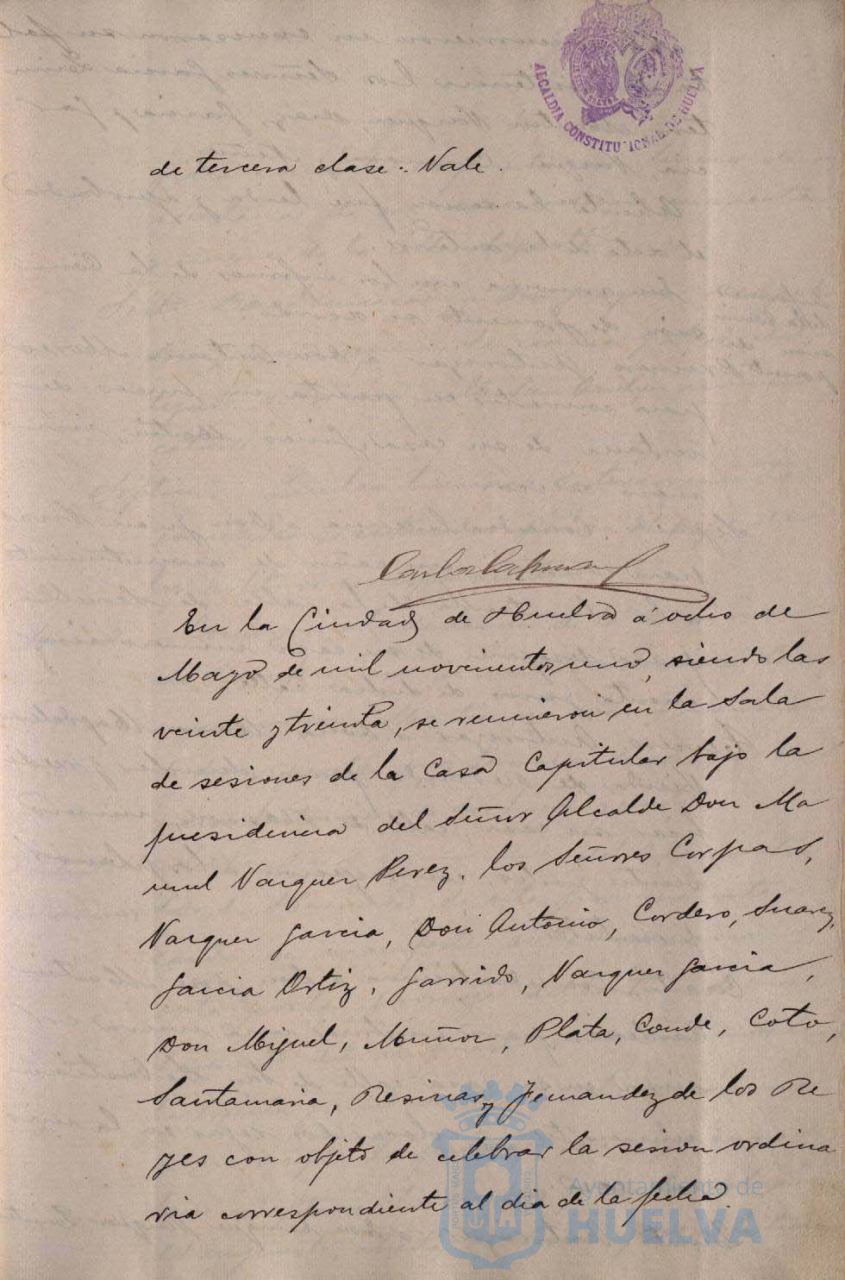 ALCALDIA CONSTITUCIONAL DE HUELVA
de tercera clase. Vale.
En la Ciudad de Huelva á ocho de
Mayo de mil novecientos uno, siendo las
veinte y treinta, se reunieron en la Sala
de sesiones de la Casa Capitular bajo la
presidencia del Señor Alcalde Don Ma
nuel Vazquez Perez, los Señores Corpas,
Vazquez Garcia, Don Antonio, Cordero, Suarez,
Garcia Ortiz, Garrido, Vazquez Garcia,
Don Miguel, Muñoz, Plata, Conde, Coto,
Santamaria, Resinas y Fernandez de los Re
yes con objeto de celebrar la sesion ordina
ria correspondiente al dia de la fecha.
Ayuntamiento de
HUELVA